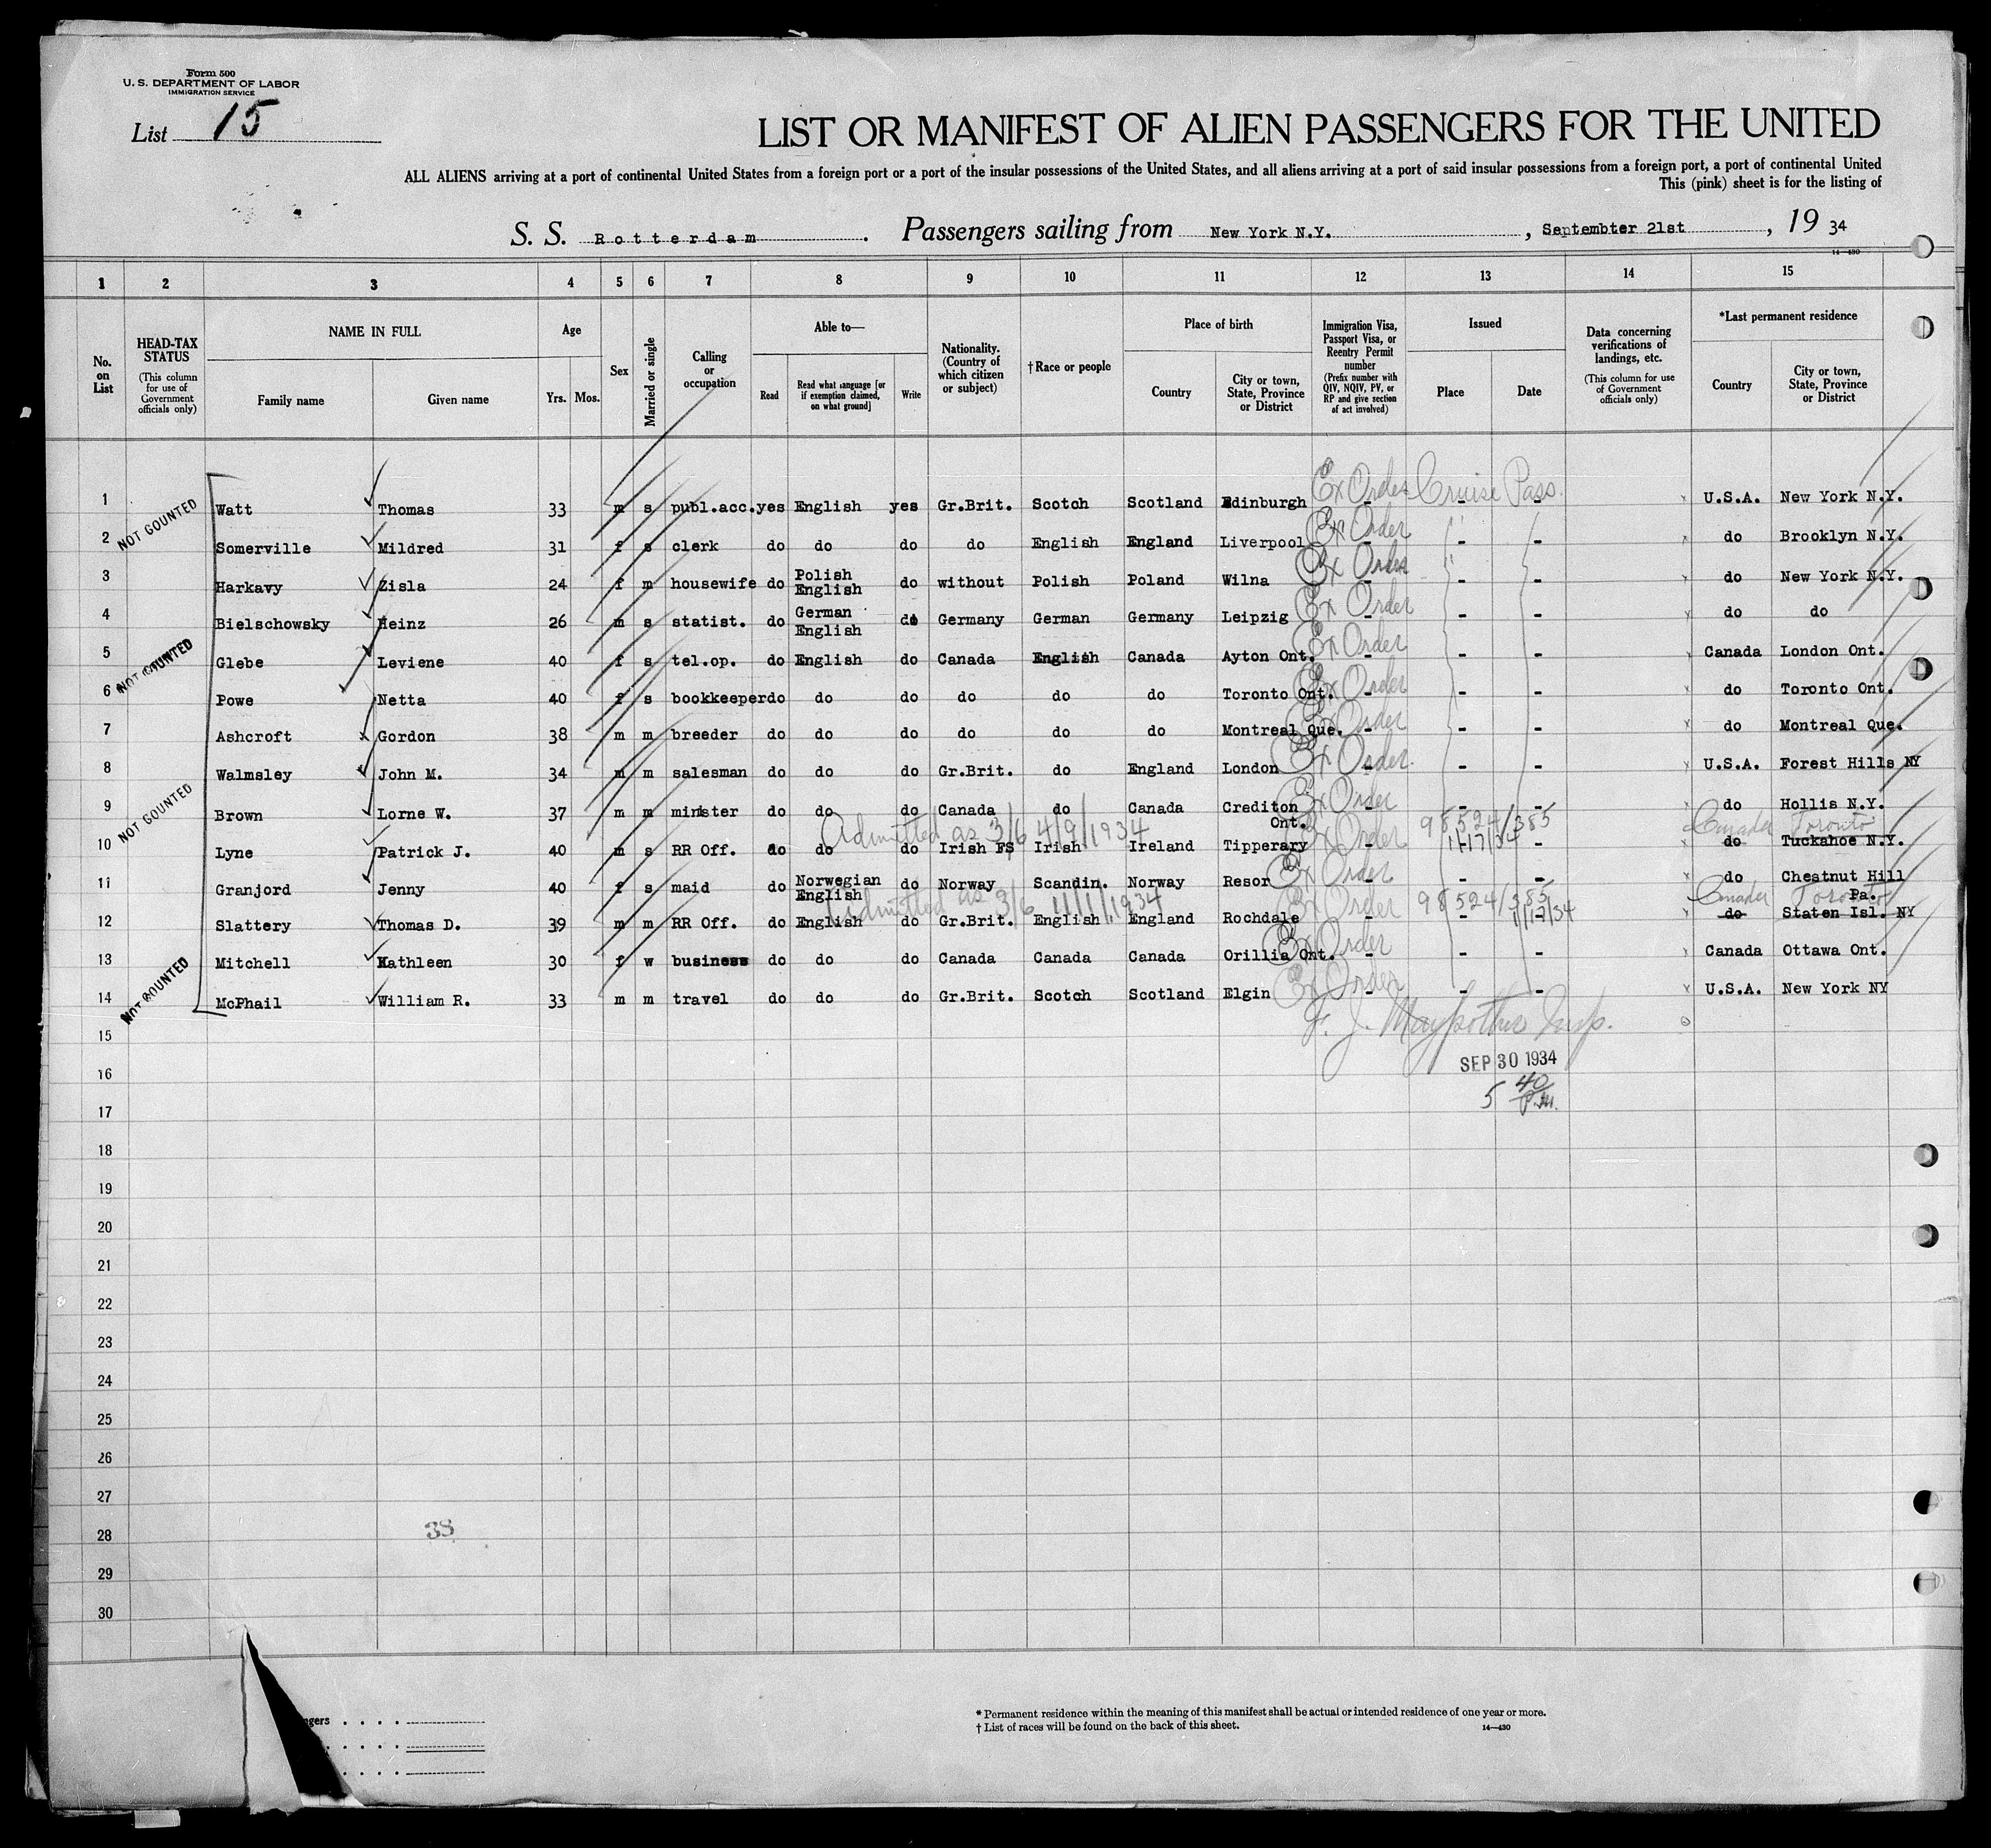 Form 500
U. S. DEPARTMENT OF LABOR
IMMIGRATION SERVICE
List 15
LIST OR MANIFEST OF ALIEN PASSENGERS FOR THE UNITED
ALL ALIENS arriving at a port of continental United States from a foreign port or a port of the insular possessions of the United States, and all aliens arriving at a port of said insular possessions from a foreign port, a port of continental United
This (pink) sheet is for the listing of
S. S. Rotterdam. Passengers sailing from New York N.Y., Septembter 21st, 19 34
14—430
1 2 3 4 5 6 7 8 9 10 11 12 13 14 15
No. on List
HEAD-TAX STATUS
(This column for use of Government officials only)
NAME IN FULL
Family name Given name
Age
Yrs. Mos.
Sex
Married or single
Calling or occupation
Able to—
Read Read what language [or if exemption claimed, on what ground] Write
Nationality. (Country of which citizen or subject)
†Race or people
Place of birth
Country City or town, State, Province or District
Immigration Visa, Passport Visa, or Reentry Permit number
(Prefix number with QIV, NQIV, PV, or RP and give section of act involved)
Issued
Place Date
Data concerning verifications of landings, etc.
(This column for use of Government officials only)
*Last permanent residence
Country City or town, State, Province or District
1 NOT COUNTED Watt Thomas 33 m s publ.acc. yes English yes Gr.Brit. Scotch Scotland Edinburgh Ex Order - Cruise Pass. - - U.S.A. New York N.Y.
2 Somerville Mildred 31 f s clerk do do do do English England Liverpool Ex Order - " - - do Brooklyn N.Y.
3 Harkavy Zisla 24 f m housewife do Polish English do without Polish Poland Wilna Ex Order - " - - do New York N.Y.
4 Bielschowsky Heinz 26 m s statist. do German English do Germany German Germany Leipzig Ex Order - - - do do
5 NOT COUNTED Glebe Leviene 40 f s tel.op. do English do Canada English Canada Ayton Ont. Ex Order - - Canada London Ont.
6 Powe Netta 40 f s bookkeeper do do do do do do Toronto Ont. Ex Order - - - do Toronto Ont.
7 Ashcroft Gordon 38 m m breeder do do do do do do Montreal Que. Ex Order - - - do Montreal Que.
8 Walmsley John M. 34 m m salesman do do do Gr.Brit. do England London Ex Order - - - U.S.A. Forest Hills NY
9 NOT COUNTED Brown Lorne W. 37 m m minister do do do Canada do Canada Crediton Ont. Ex Order - - - do Hollis N.Y.
Admitted as 3/6 4/9/1934 98524/385 Canada Toronto
10 Lyne Patrick J. 40 m s RR Off. do do do Irish FS Irish Ireland Tipperary Ex Order - 1/17/34 - do Tuckahoe N.Y.
11 Granjord Jenny 40 f s maid do Norwegian English do Norway Scandin. Norway Resor Ex Order - - do Chestnut Hill Pa.
Admitted as 3/6 11/1/1934 98524/385 Canada Toronto
12 Slattery Thomas D. 39 m m RR Off. do English do Gr.Brit. English England Rochdale Ex Order - - 1/17/34 do Staten Isl. NY
13 Mitchell Kathleen 30 f w business do do do Canada Canada Canada Orillia Ont. Ex Order - - Canada Ottawa Ont.
14 NOT COUNTED McPhail William R. 33 m m travel do do do Gr.Brit. Scotch Scotland Elgin Ex Order - - - U.S.A. New York NY
15 F. J. Insp.
16 SEP 30 1934
17 5 40 P.M.
18
19
20
21
22
23
24
25
26
27
28 38
29
30
ngers . . . .
* Permanent residence within the meaning of this manifest shall be actual or intended residence of one year or more.
† List of races will be found on the back of this sheet. 14—430